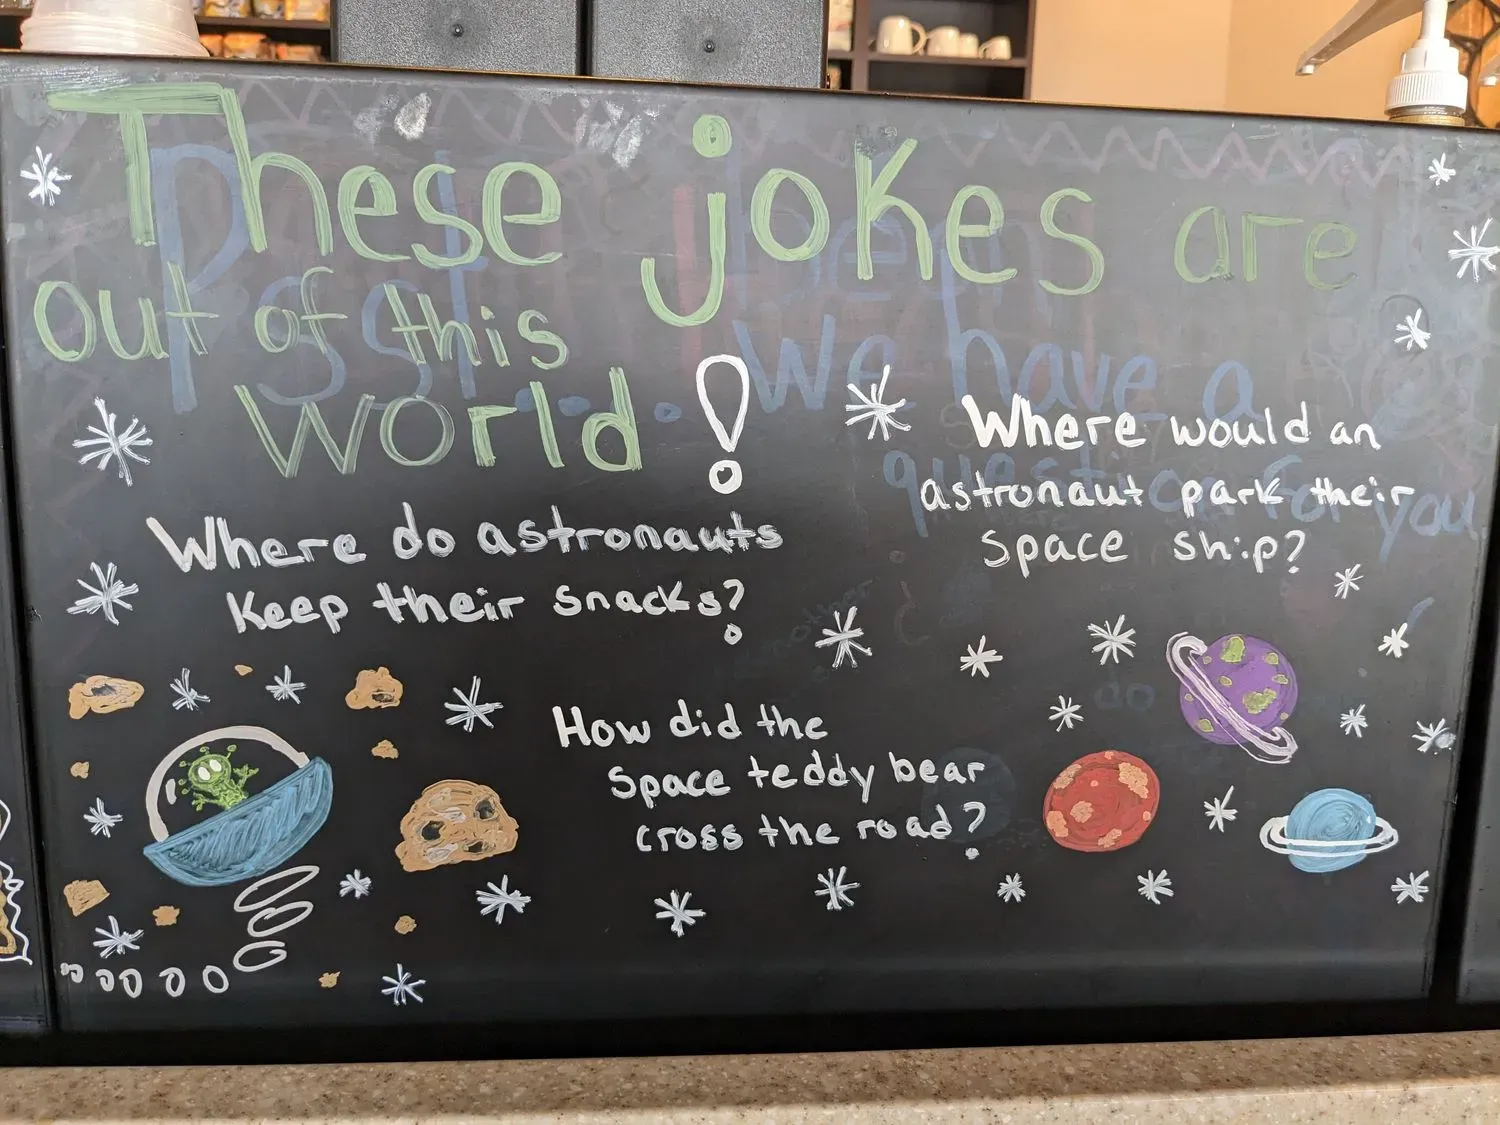 These jokes are
out of this
world!
Where do astronauts
Keep their snacks?
Where would an
astronaut park their
space ship?
How did the
Space teddy bear
cross the road?
Psst....We have a
question for you